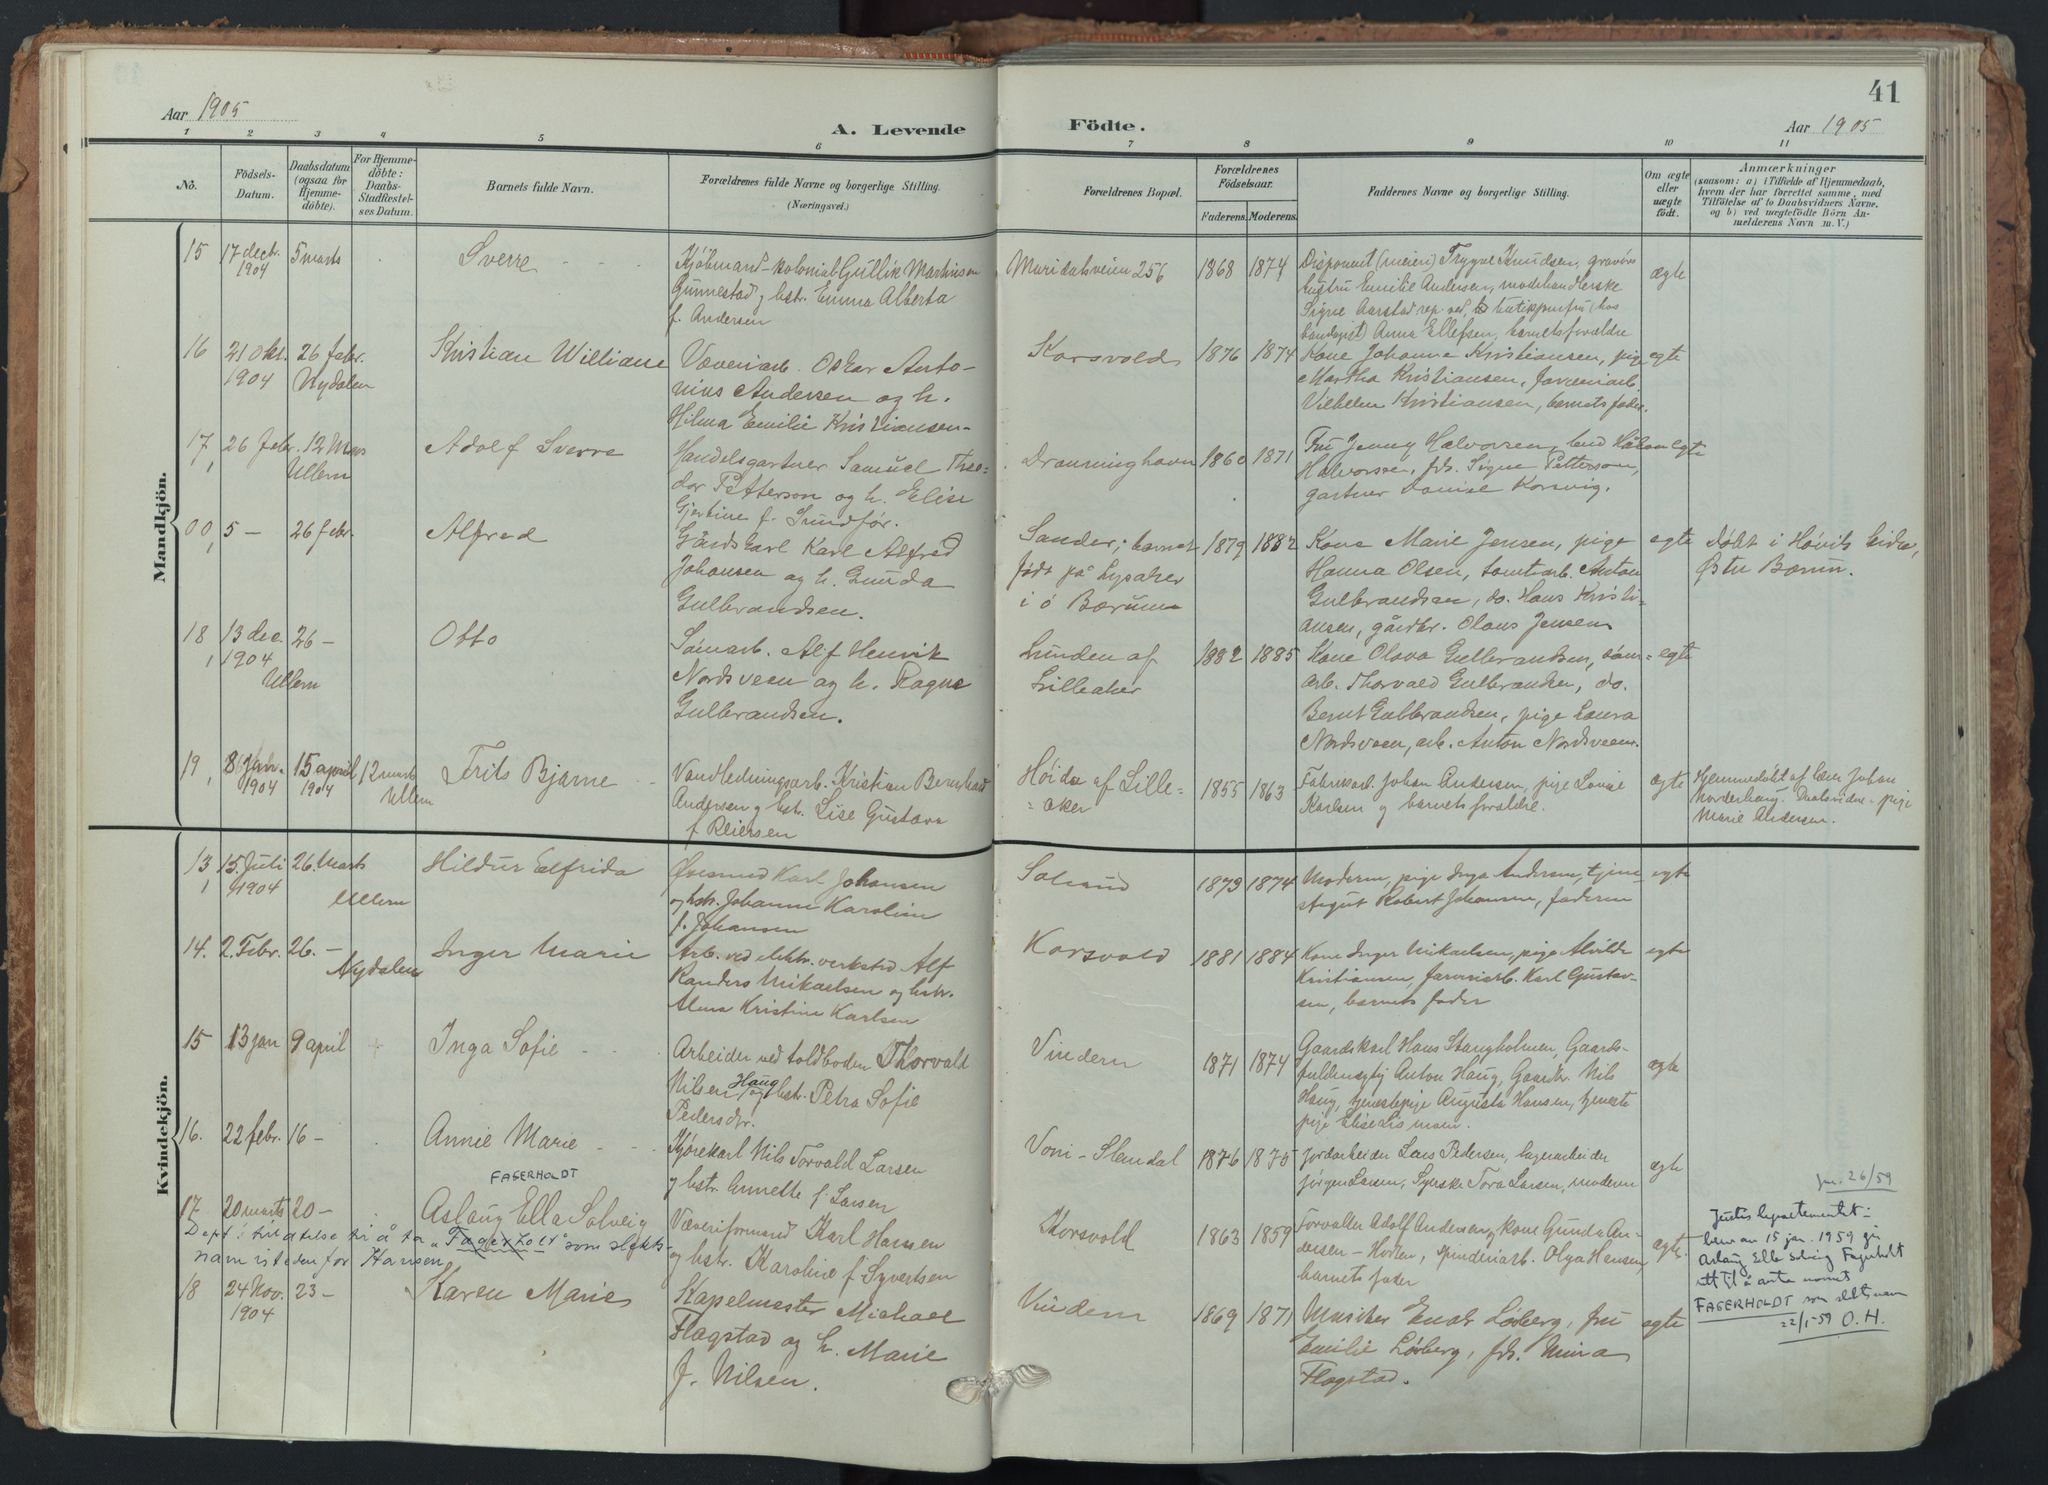 41
Aar 1905
A. Levende Födte.
Aar 1905
1 2 3 4 5 6 7 8 9 10 11
No.
Födsels-Datum.
Daabsdatum (ogsaa for Hjemme-döbte).
For Hjemme-döbte: Daabs-Stadfæstel-ses Datum.
Barnets fulde Navn.
Forældrenes fulde Navne og borgerlige Stilling.
(Næringsvei.)
Forældrenes Bopæl.
Forældrenes Födselsaar.
Faderens. Moderens.
Faddernes Navne og borgerlige Stilling.
Om ægte eller uægte födt.
Anmærkninger
(saasom: a) i Tilfælde af Hjemmedaab, hvem der har forrettet samme, med Tilföielse af to Daabsvidners Navne, og b) ved uægtefödte Börn An-melderens Navn m. V.)
Mandkjön.
15 17 decbr. 1904 5 marts Sverre
Kjøbmand - kolonial Gullik Martinsen
Gunnestad og hstr. Emma Alberta
f. Andersen
Maridalsveien 256 1868 1874
Disponent (meieri) Trygve Knudsen, gravørs
hustru Emilie Andersen, modehandlerske
Signe Aarstad
Anna Ellefsen, barnets forældre
ægte
16 21 okt. 1904 26 febr. Nydalen Kristian William
Væveriarb. Oskar Anto-
nius Andersen og h.
Hilma Emilie Kristiansen
Korsvold 1876 1874
Kone Johanne Kristiansen, pige
Martha Kristiansen, farveriarb.
Vilhelm Kristiansen, barnets fader.
egte
17 26 febr. 12 Mars Ullern Adolf Sverre
Handelsgartner Samuel Theo-
dor Petterson og h. Elise
Gjertine f. Sundför.
Dronninghavn 1860 1871
Fru Jenny Halvorsen, Håkon
Halvorsen, frk. Signe Petterson,
gartner Korsvig.
egte
00 5 - 26 febr. Alfred
Gårdskarl Karl Alfred
Johansen og h. Gunda
Gulbrandsen.
Sander; barnet
født på Lysaker
i ö Bærum
1879 1882
Kone Marie Jensen, pige
Hanna Olsen, tomtearb. Anton
Gulbrandsen, do. Hans Kristi-
ansen, gårdbr. Olaus Jensen
egte
Døbt i Høviks kirke,
Østre Bærum.
18 13 dec. 1904 26 - Ullern Otto
Sømarb. Alf Henrik
Nordsveen og h. Ragna
Gulbrandsen.
Lunden af
Lilleaker
1882 1885
Kone Olava Gulbrandsen, søm-
arb. Thorvald Gulbrandsen, do.
Bernt Gulbrandsen, pige Laura
Nordsveen, arb. Anton Nordsveen.
egte
19 8 Jan. 1904 15 april 1904 12 marts Ullern Frits Bjarne
Vandledningsarb. Kristian Bernhard
Andersen og hstr. Lise Gustava
f. Reiersen
Høida af Lille-
aker
1855 1863
Fabrikarb. Johan Andersen, pige Lovise
Karlsen og barnets forældre.
ægte
Hjemmedøbt af Johan
Norderhaug. Daabsvidne - pige
Marie Andersen.
Kvindekjön.
13 15 Juli 1904 26 Marts Ullern Hildur Elfrida
Karl Johansen
og hstr. Johanne Karoline
f. Johansen
1879 1874
Moderen, pige Inga Andersen, tjene-
stegut Robert Johansen, faderen
egte
14. 2. Febr. 26. - Nydalen Inger Marie
Arb. ved elektr. verksted Alf
Randers Mikaelsen og hstr.
Alma Kristine Karlsen
Korsvold 1881 1884
Kone Inger Mikaelsen, pige Alvilde
Kristiansen, farveriarb. Karl Gustav-
sen, barnets fader
egte
15 13 jan 9 april Inga Sofie
Arbeider ved toldboden Thorvald
Nilsen Haug og hstr. Petra Sofie
Pedersdtr.
Vindern 1871 1874
Gaardskarl Hans Stangholmen, Gaards-
fuldmægtig Anton Haug, Gaardbr. Nils
Haug, tjenestepige Augusta Hansen, tjeneste
pige Elise Lismoen.
ægte
16. 22 febr. 16 - Annie Marie
Kjørekarl Nils Torvald Larsen
og hstr. Annette f. Larsen
Voxi - Slemdal 1876 1875
Jordarbeider Lars Pedersen, lagerarbeider
Jørgen Larsen, Syerske Tora Larsen, moderen
ægte
FAGERHOLDT
17 20 marts 20 - Aslaug Ella Solveig
Væveriformand Karl Hansen
og hstr. Karoline f. Syvertsen
Korsvold 1863 1859
Forvalter Adolf Andersen, kone Gunda An-
dersen - Horten, spinderiarb. Olga Hansen,
barnets fader
ægte.
Dept's tillatelse til å ta "Fagerholt" som slekts-
navn istedenfor Hansen
jnr. 26/59
Justisdepartementet
15 jan. 1959 gir
Aslaug Ella Solveig Fagerholt
rett til å anta navnet
FAGERHOLDT som slektsnavn
22/1-59 O.H.
18 24 Nov. 1904 23 - Karen Marie
Kapelmester Michael
Flagstad og h. Marie
f. Nilsen.
Vindern 1869 1871
Musiker Løberg, fru
Emilie Løberg, frk. Mina
Flagstad.
egte